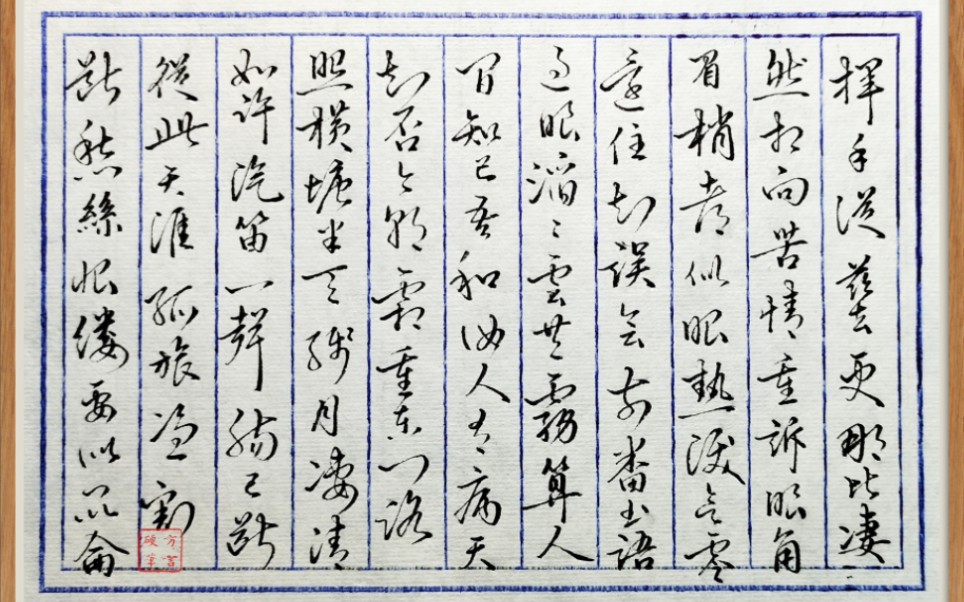 揮手從茲去更那堪凄
然相向苦情重訴眼角
眉梢都似恨熱淚欲零
還住知誤會前番書語
過眼滔々雲共霧算人
間知己吾和汝人有病天
知否今朝霜重東門路
照橫塘半天殘月凄清
如許汽笛一聲腸已斷
從此天涯孤旅憑割
斷愁絲恨縷要似崑崙